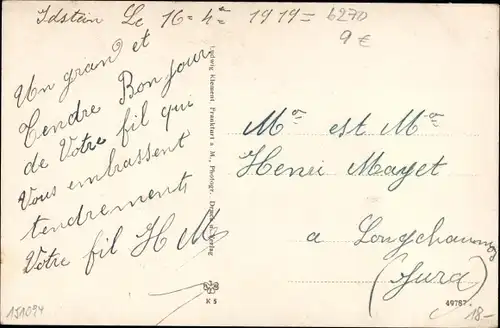 Idstein Le 16=4e= 1919=
6270
9€
Un grand et
tendre Bonjour
de Votre fil qui
Vous embrassent
tendrement
Votre fil H M
Ludwig Klement, Frankfurt a. M., Photogr. Druck u. Verlag
K 5
Mr est Me
Henri Mayet
a Longchaumois
(Jura)
49787
151094
18-